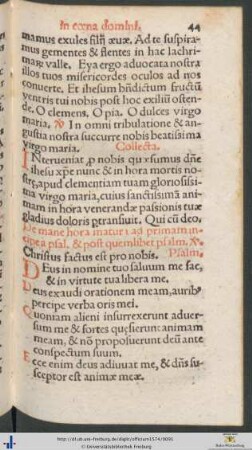 In cœna domini. 44
mamus exules filii æuæ. Ad te suspira
mus gementes & flentes in hac lachri
marũ valle. Eya ergo aduocata nostra
illos tuos misericordes oculos ad nos
conuerte. Et ihesum bñdictum fructũ
ventris tui nobis post hoc exiliũ osten-
de. O clemens, O pia. O dulces virgo
maria. In omni tribulatione & an-
gustia nostra succurre nobis beatissima
virgo maria. Collecta.
INterueniat ꝓ nobis quæsumus dñe
ihesu xpe nunc & in hora mortis no-
stre, apud clementiam tuam gloriosissi-
ma virgo maria, cuius sanctissimã ani-
mam in hora venerandæ passionis tuæ
gladius doloris ꝑtransiuit. Qui cũ deo.
De mane hora matura ad primam in-
cipe psal. & post quemlibet psalm.
Christus factus est pro nobis. Psalm.
DEus in nomine tuo saluum me fac,
& in virtute tua libera me.
Deus exaudi orationem meam, auribꝰ
percipe verba oris mei.
Quoniam alieni insurrexerunt aduer-
sum me & fortes quæsierunt animam
meam, & nõ proposuerunt deũ ante
conspectum suum.
Ecce enim deus adiuuat me, & dñs su-
sceptor est animæ meæ.
Universitätsbibliothek Freiburg